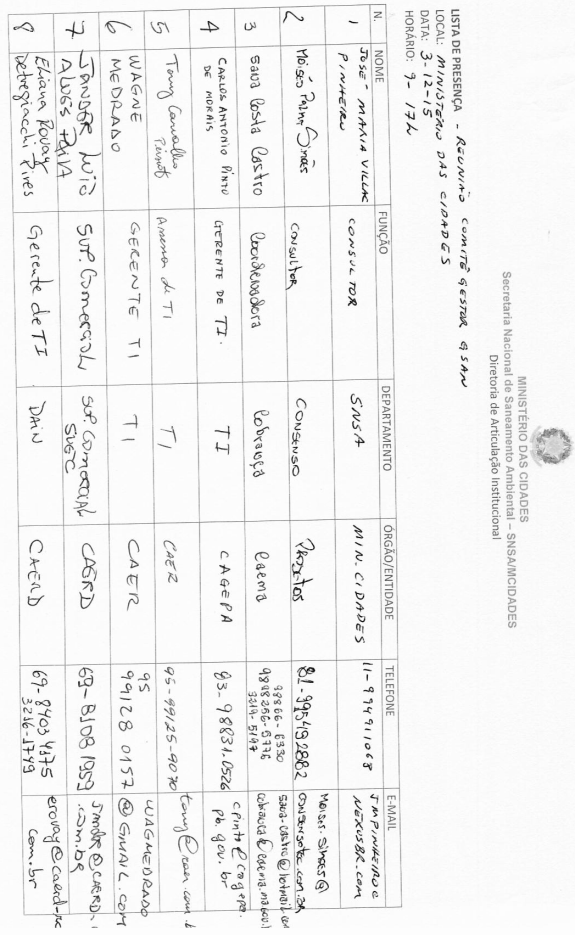 MINISTÉRIO DAS CIDADES
Secretaria Nacional de Saneamento Ambiental – SNSA/MCIDADES
Diretoria de Articulação Institucional
LISTA DE PRESENÇA - REUNIÃO COMITÊ GESTOR GSAN
LOCAL: MINISTÉRIO DAS CIDADES
DATA: 3-12-15
HORÁRIO: 9-17h
N. NOME FUNÇÃO DEPARTAMENTO ÓRGÃO/ENTIDADE TELEFONE E-MAIL
1 JOSÉ MARIA VILLAC PINHEIRO CONSULTOR SNSA MIN. CIDADES 11-994911068 JMPINHEIRO@NEXUSBR.COM
2 Moisés Simões CONSULTOR CONSENSO PROJETOS 81-995492882 Moises.simoes@consensotec.com.br
3 Sava Costa Castro Coordenadora Cobrança Caema 98866-6330 9898256-5776 3219-5197 sava-castro@hotmail.com cobranca@caema.ma.gov.b
4 CARLOS ANTONIO PINTO DE MORAIS GERENTE DE TI. TI CAGEPA 83-98831.0526 cpinto@cagepa.pb.gov.br
5 Tony Carvalho Assessor de TI TI CAER 95-99125-9070 tony@caer.com.b
6 WAGNE MEDRADO GERENTE TI TI CAER 95 99128 0157 WAGMEDRADO@GMAIL.COM
7 JANDER LUIO ALVES PAIVA SUP. Comercial SUP. Comercial CAERD 69-8108 1959 Jander@CAERD. .com.br
8 Eliana Rovay Detregiacchi Pires Gerente de TI DAIN CAERD 69-8403 4175 3216-1749 erovay@caerd-ro.com.br